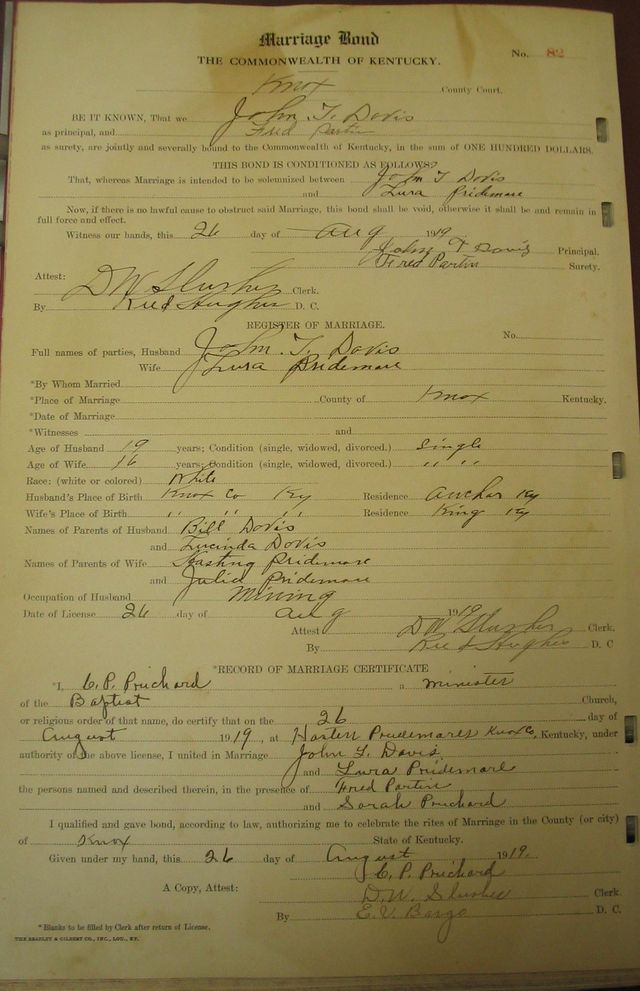 Marriage Bond
THE COMMONWEALTH OF KENTUCKY.
No. 82
Knox County Court.
BE IT KNOWN, That we John T. Davis
as principal, and Fred Partin
as surety, are jointly and severally bound to the Commonwealth of Kentucky, in the sum of ONE HUNDRED DOLLARS.
THIS BOND IS CONDITIONED AS FOLLOWS:
That, whereas Marriage is intended to be solemnized between John T Davis
and Lura Pridemare
Now, if there is no lawful cause to obstruct said Marriage, this bond shall be void, otherwise it shall be and remain in
full force and effect.
Witness our hands, this 26 day of Aug 1919
John T Davis Principal.
Fred Partin Surety.
Attest:
D W Slusher Clerk.
By Reed Hughes D. C.
REGISTER OF MARRIAGE.
No.
Full names of parties, Husband John T. Davis
Wife Lura Pridemare
*By Whom Married
*Place of Marriage County of Knox Kentucky.
*Date of Marriage
*Witnesses and
Age of Husband 19 years; Condition (single, widowed, divorced.) Single
Age of Wife 16 years; Condition (single, widowed, divorced.) " "
Race: (white or colored) White
Husband's Place of Birth Knox Co Ky Residence Anchor Ky
Wife's Place of Birth " " " Residence King Ky
Names of Parents of Husband Bill Davis
and Lucinda Davis
Names of Parents of Wife Hasting Pridemare
and Julia Pridemare
Occupation of Husband Mining
Date of License 26 day of Aug 1919
Attest D W Slusher Clerk.
By Reed Hughes D. C
*RECORD OF MARRIAGE CERTIFICATE
*I, C. P. Prichard a minister
of the Baptist Church,
or religious order of that name, do certify that on the 26 day of
August 1919, at Hasten Pridemares Knox Co, Kentucky, under
authority of the above license, I united in Marriage John T. Davis
and Lura Pridemare
the persons named and described therein, in the presence of Fred Partin
and Sarah Prichard
I qualified and gave bond, according to law, authorizing me to celebrate the rites of Marriage in the County (or city)
of Knox State of Kentucky.
Given under my hand, this 26 day of August 1919.
C. P. Prichard
A Copy, Attest: D. W. Slusher Clerk
By E. V. Bargo D. C.
*Blanks to be filled by Clerk after return of License.
THE BRADLEY & GILBERT CO., INC., LOU., KY.